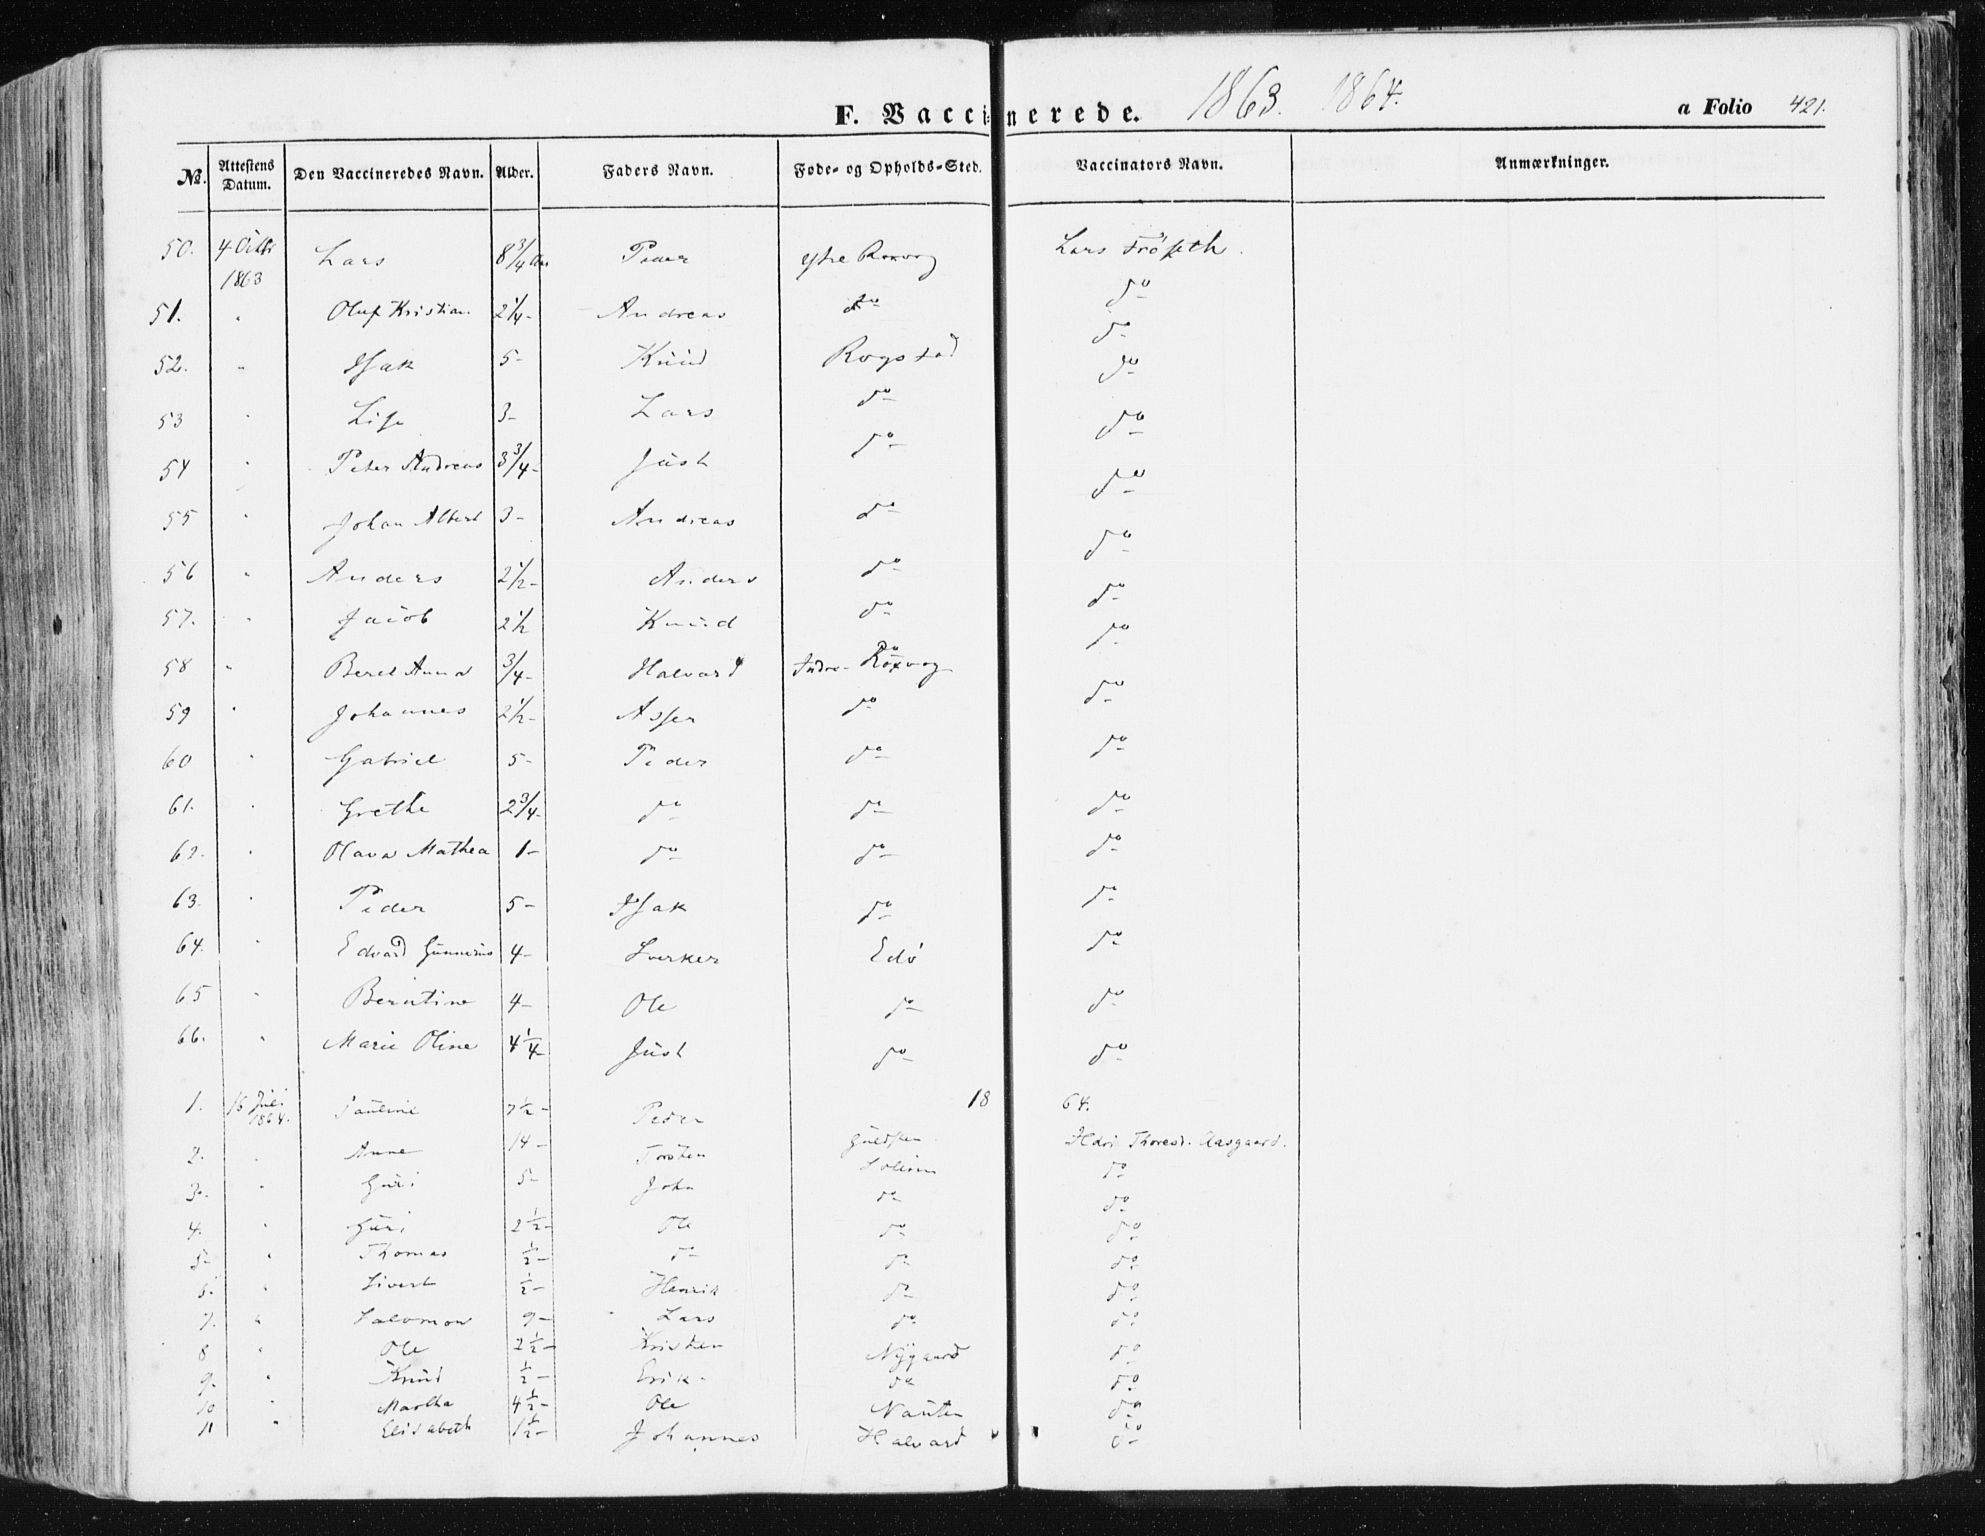 F. Vaccinerede. 1863. 1864. a Folio 421.
No. Attestens Datum. Den Vaccineredes Navn. Alder. Faders Navn. Føde- og Opholds-Sted. Vaccinators Navn. Anmærkninger.
50. 4 1863 Lars 8 3/4 Peder Lars
51. " Oluf Kristian 2 1/4 - Andreas do do
52. " Isak 5 - Knud Rogstad do
53 " Lise 3 - Lars do do
54 " Peter Andreas 3 3/4 - Just do do
55 " Johan Albert 3 - Andreas do do
56 " Anders 2 1/2 - Anders do do
57. " Jacob 2 1/2 Knud do do
58 " Beret Anna 3/4 - Halvard do
59 " Johannes 2 1/2 - Asser do do
60 " Gabriel 5 - Peder do do
61. " Grethe 2 3/4 - do do do
62. " Olava Mathea 1 - do do do
63. " Peder 5 - Isak do do
64. " Edvard Gunnerius 4 - Sverker Edö do
65 " Berntine 4 - Ole do do
66. " Marie Oline 4 1/4 - Just do do
1864.
1. 16 Juli 1864. Pauline 7 1/2 - Peder Thoresd. Aasgaard.
2. " Anne 14 - Torsten do
3. " Guri 5 - John do do
4. " Guri 2 1/2 - Ole do do
5 " Thomas 1/2 - do do do
6. " Sivert 1/2 - Henrik do do
7. " Salomon 9 - Lars do do
8 " Ole 2 1/2 - Kristen Nygaard do
9. " Knud 1/2 - Erik do do
10 " Martha 4 1/2 - Ole do
11 " Elisabeth 1 1/2 - Johannes Halvard do